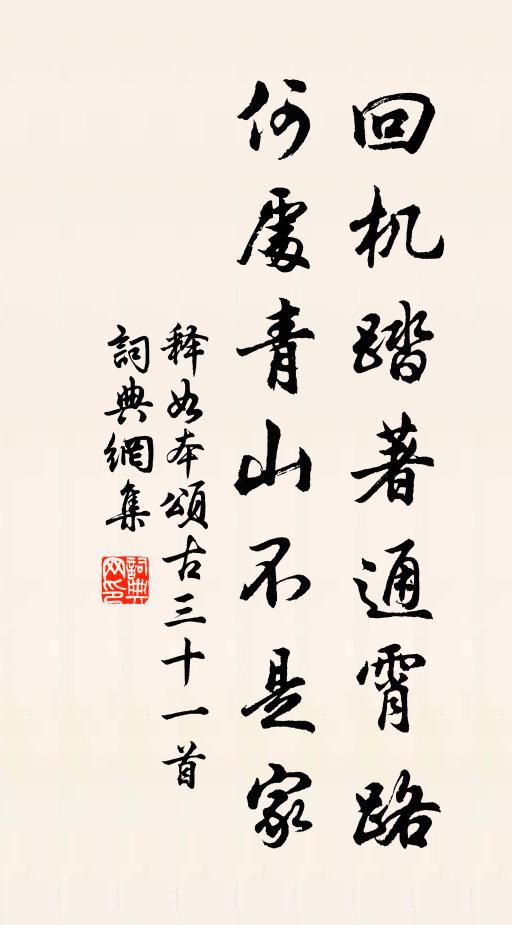 回机踏著通霄路
何處青山不是家
释如本頌古三十一首
詞典網集
詞典网印